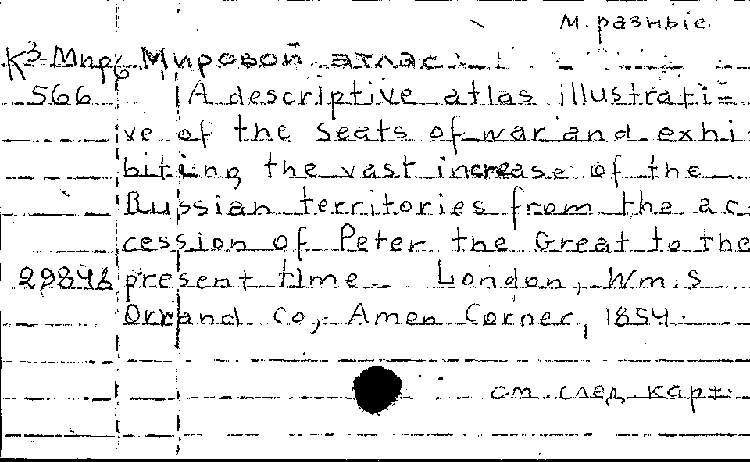 м. разные
К3 Мир6 Мировой атлас.
566 A descriptive atlas illustrati=
ve of the seats of war and exhi
biting the vast increase of the
Russian territories from the ac
cession of Peter the Great to the
present time. London, Wm. S
Orr and Co, Amen Corner, 1854.
см. след карт.